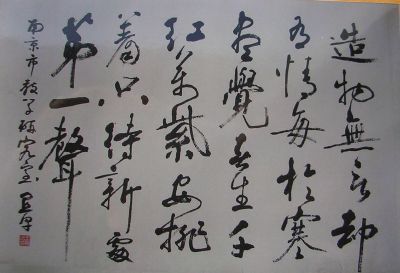 造物無言却
有情每於寒
盡覺春生千
紅萬紫安排
著只待新雷
第一聲
南京市教學研究室